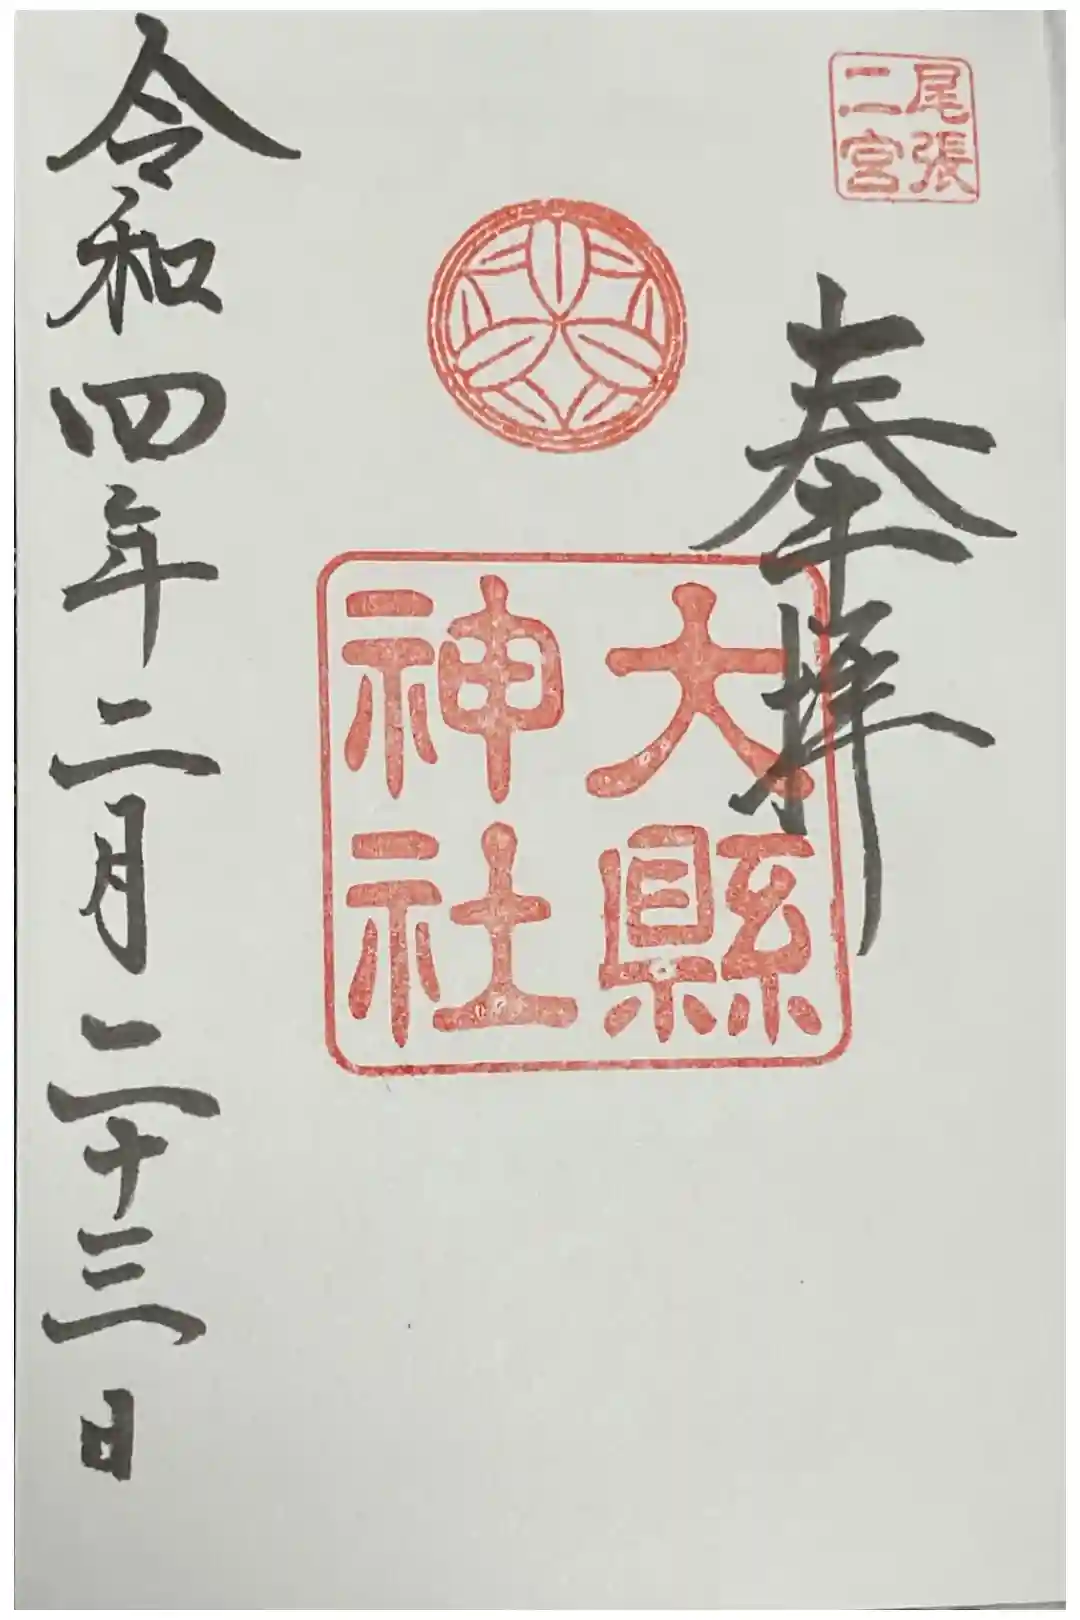 尾張
二宮
奉拝
大縣
神社
令和四年二月二十三日